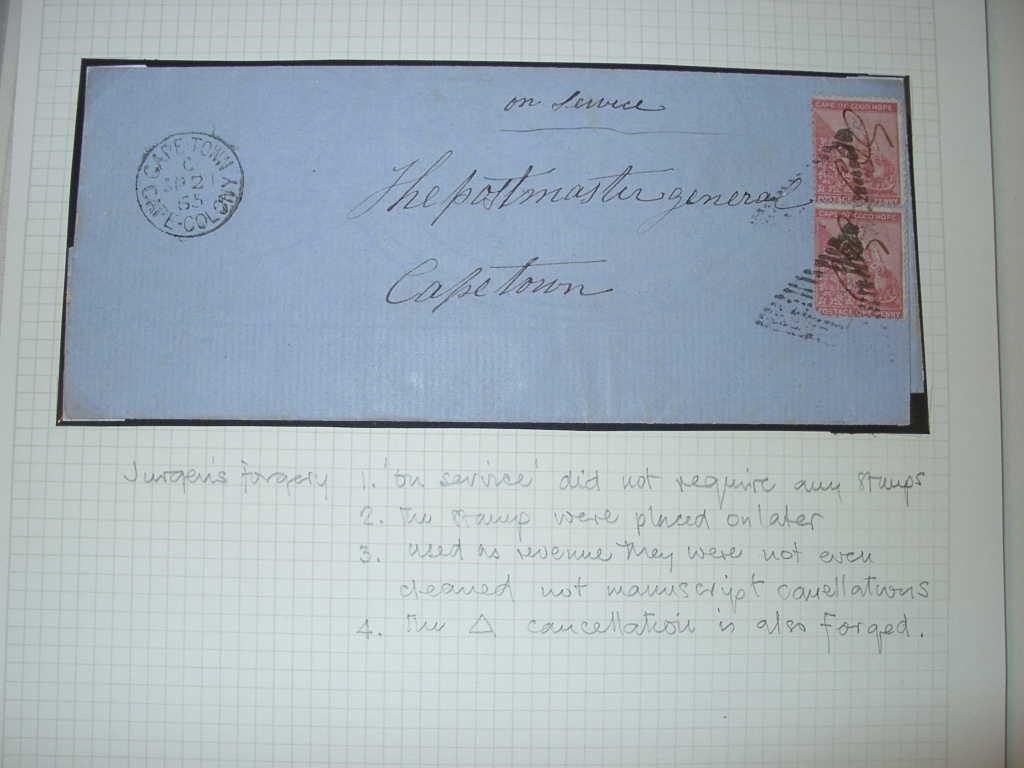 on service
The postmaster general
Cape town
CAPE-TOWN
CAPE-COLONY
CAPE OF GOOD HOPE
POSTAGE ONE PENNY
CAPE OF GOOD HOPE
POSTAGE ONE PENNY
Jurgen's forgery 1. 'on service' did not require any stamps
2. The stamp were placed on later
3. used as revenue they were not even
cleaned not manuscript canellations
4. The △ cancellation is also forged.